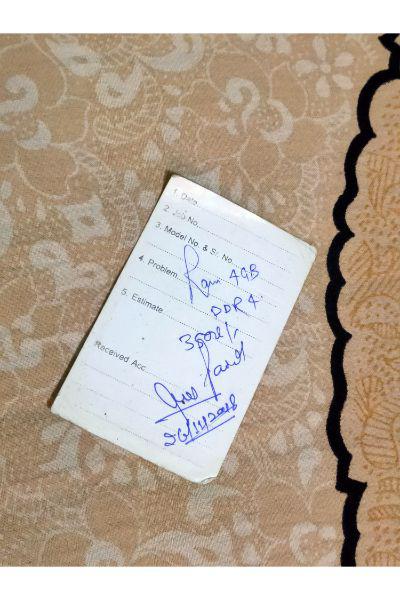 1. Date
2. Job No.
3. Model No. & Sr. No.
4. Problem Ram 4GB
DDR4
5. Estimate 3500/-
Received Acc. Paid
26/11/2018